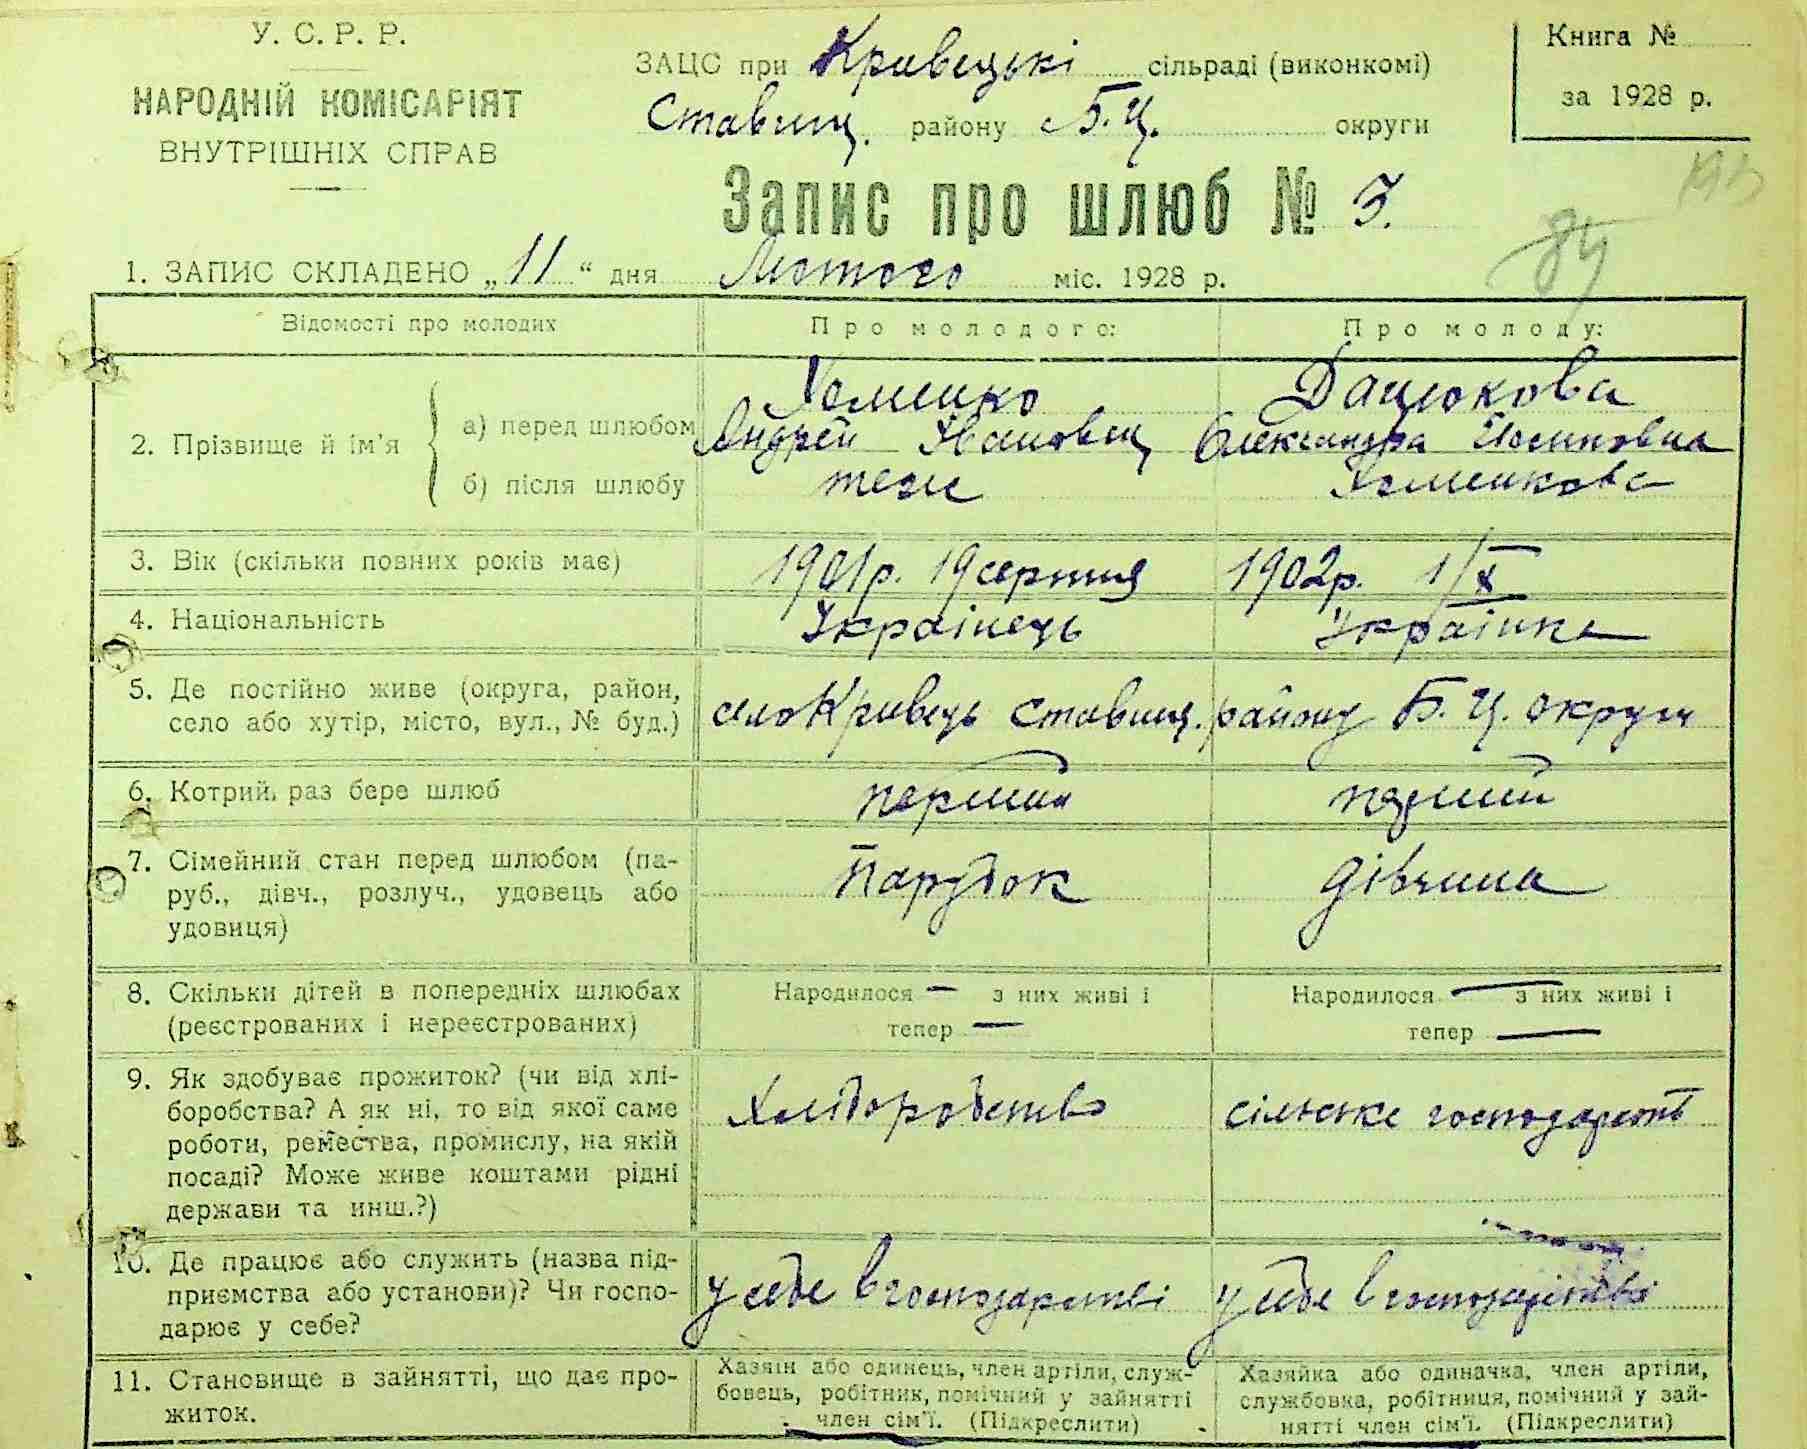 У. С. Р. Р.
НАРОДНІЙ КОМІСАРІЯТ
ВНУТРІШНІХ СПРАВ
ЗАЦС при Кривецькі сільраді (виконкомі)
Ставищ. району Б.Ц. округи
Книга №
за 1928 р.
Запис про шлюб № 3.
84
1. ЗАПИС СКЛАДЕНО „11“ дня Лютого міс. 1928 р.
Відомості про молодих
Про молодого:
Про молоду:
2. Прізвище й ім'я
а) перед шлюбом
Хоменко
Андрей Іванович
Дацюкова
Олександра Йосиповна
б) після шлюбу
теж
Хоменкова
3. Вік (скільки повних років має)
1901р. 19 серпня
1902р. 1/X
4. Національність
Українець
Українка
5. Де постійно живе (округа, район,
село або хутір, місто, вул., № буд.)
село Кривець Ставищ. району Б. Ц. округи
6. Котрий раз бере шлюб
перший
перший
7. Сімейний стан перед шлюбом (па-
руб., дівч., розлуч., удовець або
удовиця)
Парубок
дівчина
8. Скільки дітей в попередніх шлюбах
(реєстрованих і нереєстрованих)
Народилося — з них живі і
тепер —
Народилося — з них живі і
тепер —
9. Як здобуває прожиток? (чи від хлі-
боробства? А як ні, то від якої саме
роботи, ремества, промислу, на якій
посаді? Може живе коштами рідні
держави та инш.?)
Хліборобство
сільське господарство
10. Де працює або служить (назва під-
приємства або установи)? Чи госпо-
дарює у себе?
у себе в господарстві
у себе в господарстві
11. Становище в зайнятті, що дає про-
житок.
Хазяїн або одинець, член артіли, служ-
бовець, робітник, помічний у зайнятті
член сім'ї. (Підкреслити)
Хазяйка або одиначка, член артіли,
службовка, робітниця, помічний у зай-
нятті член сім'ї. (Підкреслити)